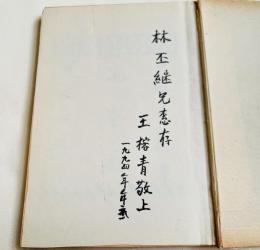 林丕継兄惠存
王榕青敬上
一九九四年